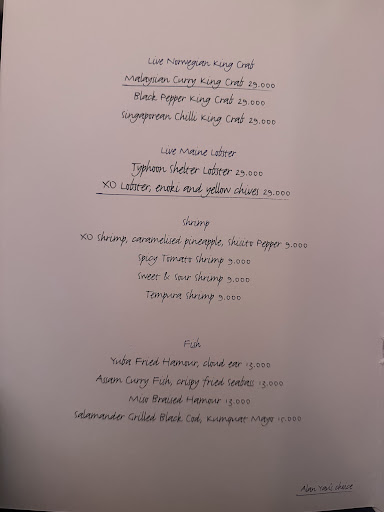 Live Norwegian King Crab
Malaysian Curry King Crab 29.000
Black Pepper King Crab 29.000
Singaporean Chilli King Crab 29.000
Live Maine Lobster
Typhoon Shelter Lobster 29.000
XO Lobster, enoki and yellow chives 29.000
Shrimp
XO Shrimp, caramelised pineapple, Shisito Pepper 9.000
Spicy Tomato Shrimp 9.000
Sweet & Sour Shrimp 9.000
Tempura Shrimp 9.000
Fish
Yuba Fried Hamour, cloud ear 13.000
Assam Curry Fish, crispy fried seabass 13.000
Miso Braised Hamour 13.000
Salamander Grilled Black Cod, Kumquat Mayo 15.000
Alan Yau's choice